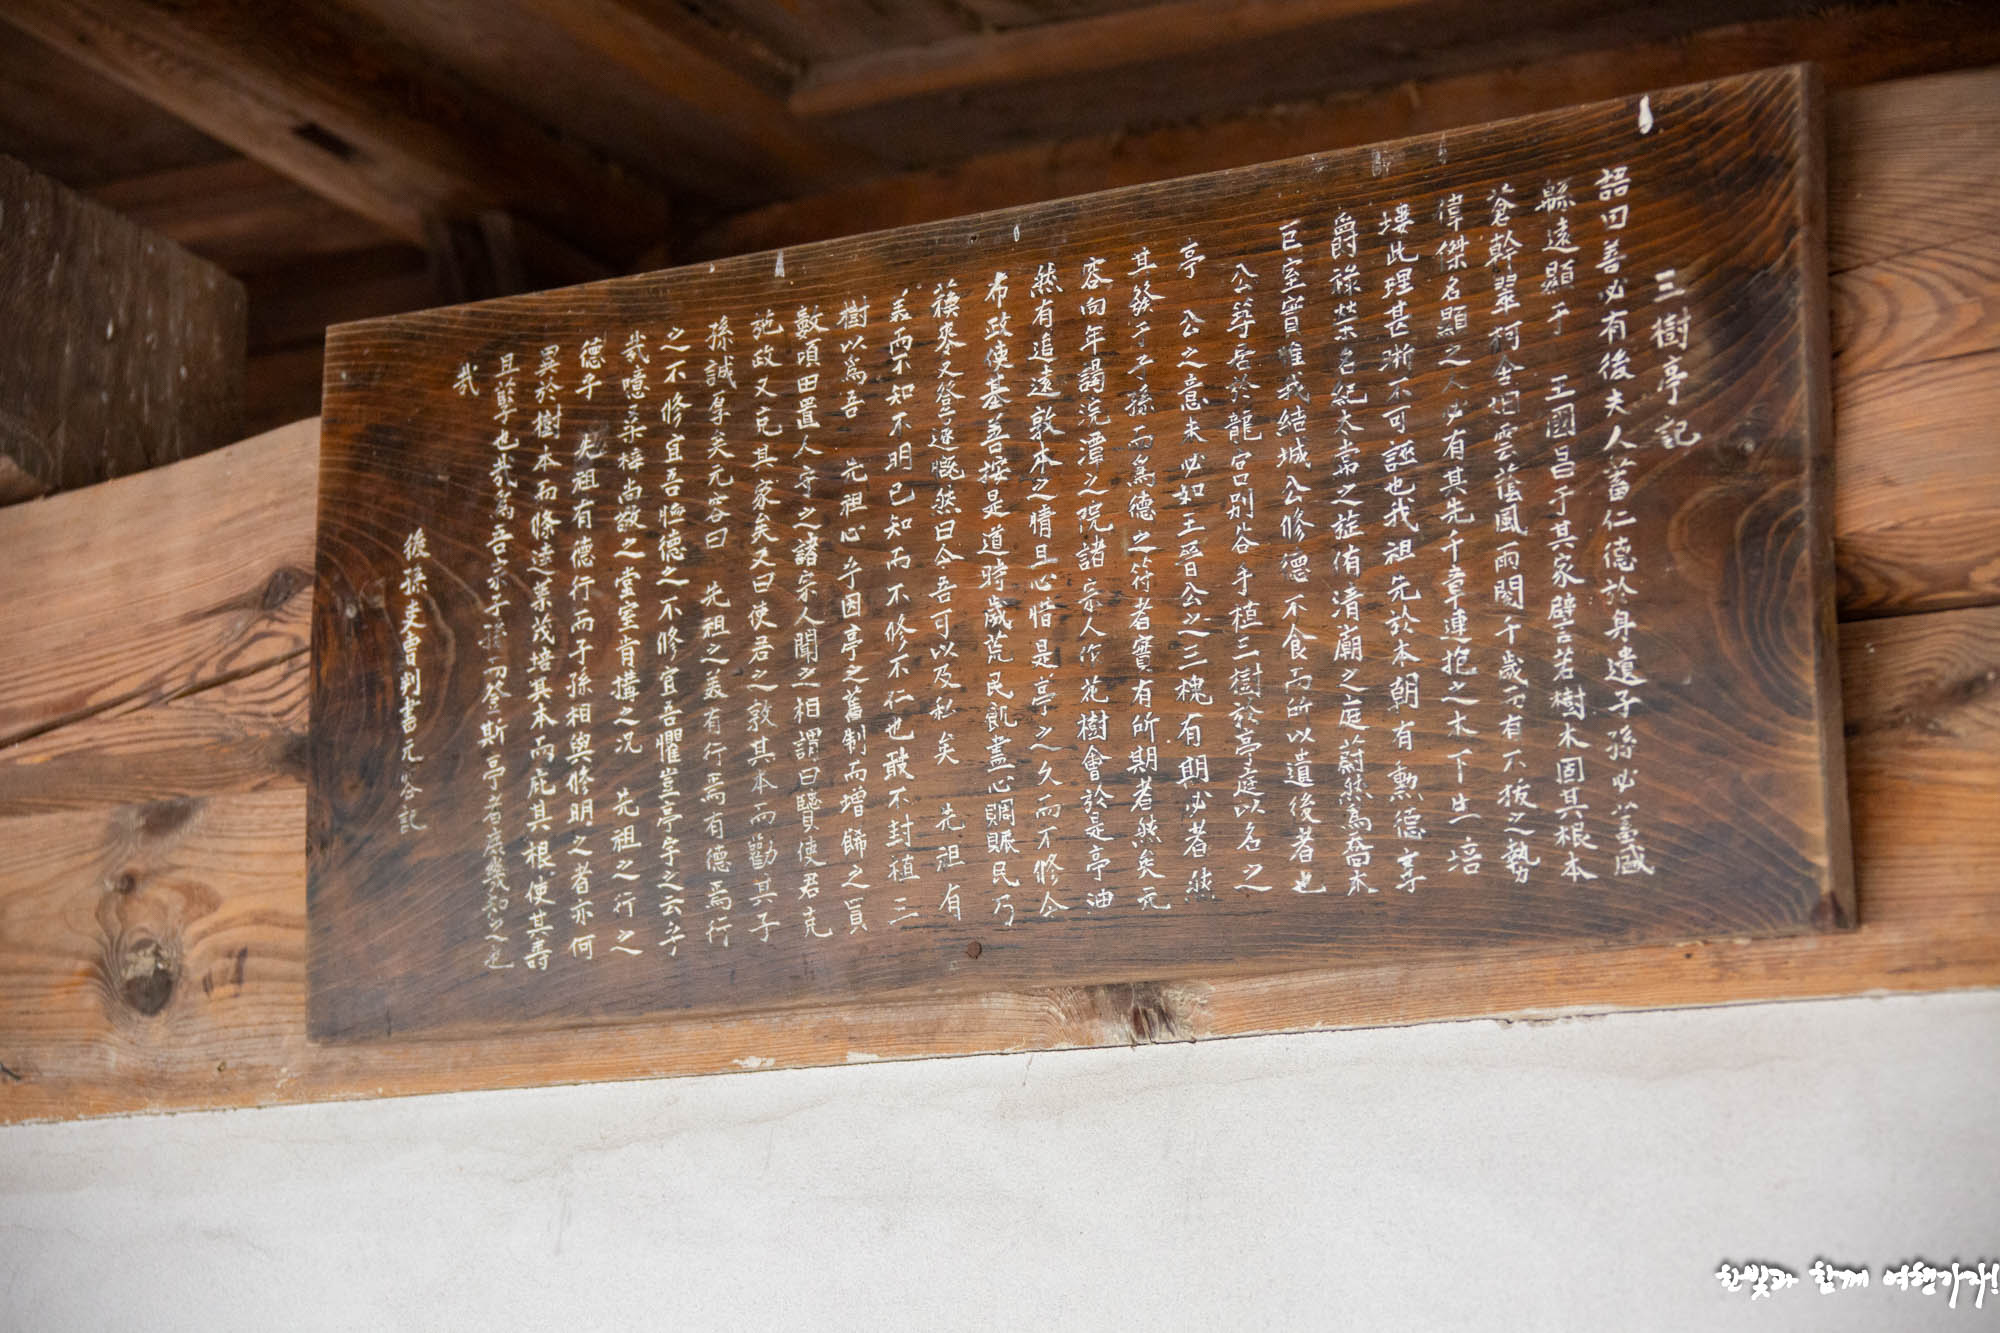 三樹亭記
語曰善必有後夫人蓄仁德於身遺子孫必蕃盛
縣遠顯于 王國昌于其家譬若樹木固其根本
蒼幹翠柯含烟雲蔭風雨閱千歲而有不拔之勢
偉傑名顯之人必有其先千章連抱之木下生培
塿此理甚晣不可誣也我祖先於本朝有勳德享
爵祿榮名紀太常之旋侑清廟之庭蔚然爲喬木
巨室實惟我結城公修德不食而所以遺後者也
公尊居於龍宮別谷手植三樹於亭庭以名之
亭 公之意未必如王晉公之三槐有期必者然
其發于子孫而爲德之符者實有所期者然矣元
容向年謁浣潭之院諸宗人作花樹會於是亭油
然有追遠敦本之情且心惜是亭之久而不修今
布政使基善按是道時歲荒民飢盡心賙賑民乃
麥又登遂慨然曰今吾可以及私矣 先祖有
美而不知不明已知而不修不仁也敢不封植三
樹以爲吾 先祖心乎因亭之舊制而增飾之買
數頃田置人守之諸宗人聞之相謂曰賢使君克
施政又克其家矣又曰使君之敦其本而勸其子
孫誠厚矣元容曰 先祖之美有行焉有德焉行
之不修宜吾恤德之不修宜吾懼豈亭宇之云乎
哉噫桑梓尚敬之堂室肯搆之况 先祖之行之
德乎 先祖有德行而子孫相與修明之者亦何
異於樹本而條達葉茂培其本而庇其根使其壽
且孽也哉爲吾宗子孫而登斯亭者庶幾知之也
哉
後孫吏曹判書元容記
한빛과 함께 여행가자!